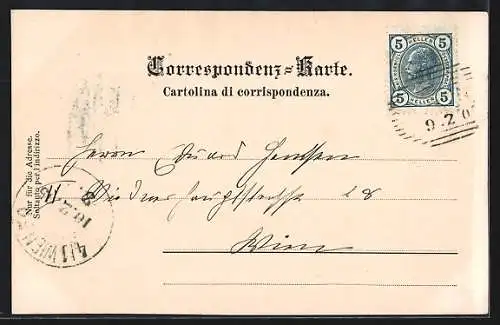 Correspondenz-Karte.
Cartolina di corrispondenza.
5 HELLER 5
5 HELLER 5
9.2.0
Nur für die Adresse.
Soltanto per l'indirizzo.
Herrn Eduard Hanssen
Wiedner Hauptstrasse 28
Wien
4/1 WIEN
10.2.